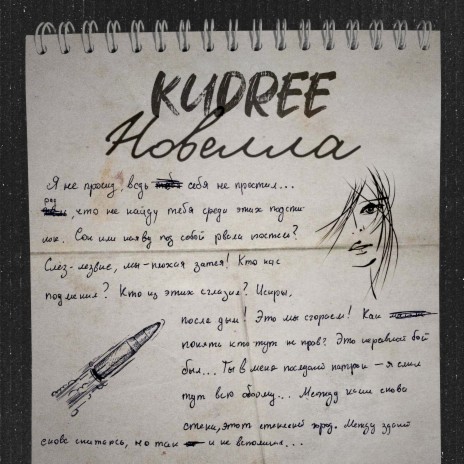 KUDREE
Новелла
Я не просил, ведь себя не простил...
рад
, что не найду тебя среди этих подсти-
лок. Сон или наяву под собой рвала постель?
Слёз-лезвие, мы-плохая затея! Кто нас
подменил? Кто из этих сглазил? Искры,
после дым! Это мы сгораем! Как
понять кто тут не прав? Это неравный бой
был... Ты в меня последний патрон - я слил
тут всю обойму... Между нами снова
стены, этот стеклянный город. Между зданий
снова считаясь, но так и не вспомним...